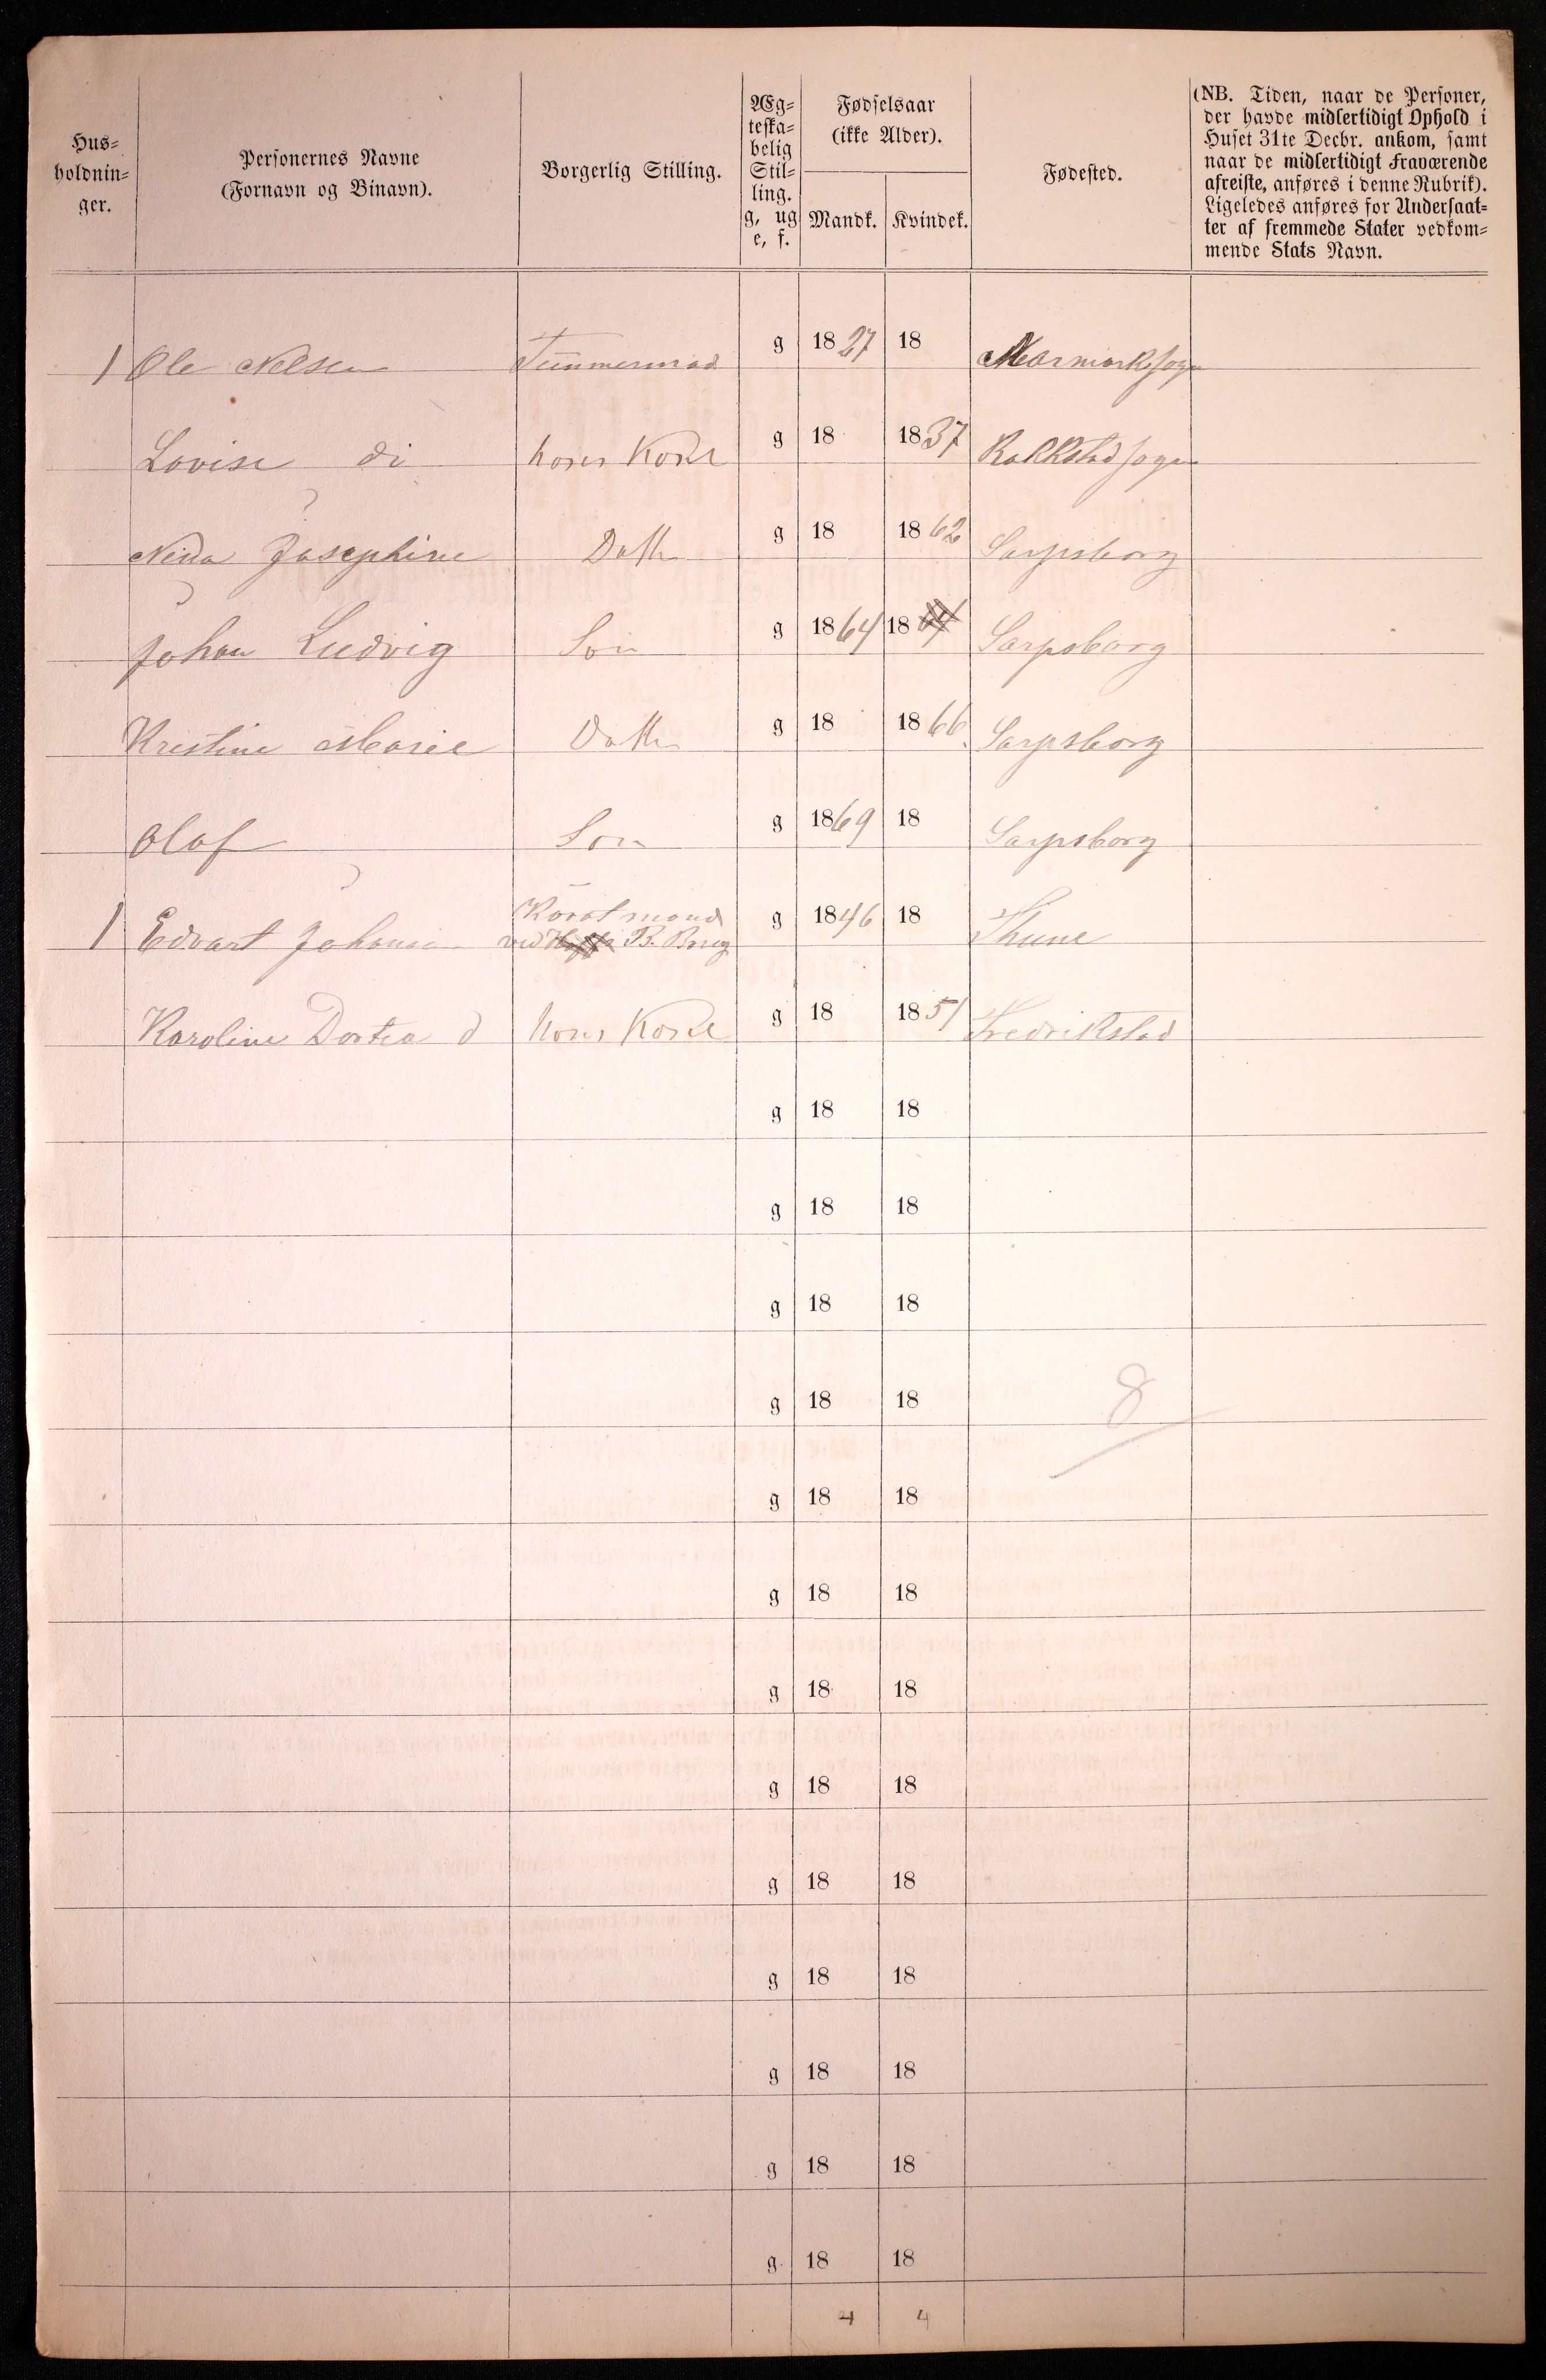 Hus=
holdnin=
ger.
Personernes Navne
(Fornavn og Binavn).
Borgerlig Stilling.
Æg=
teska=
belig
Stil=
ling.
g, ug
e, f.
Fødselsaar
(ikke Alder).
Mandk. Kvindek.
Fødested.
(NB. Tiden, naar de Personer,
der havde midlertidigt Ophold i
Huset 31te Decbr. ankom, samt
naar de midlertidigt Fraværende
afreiste, anføres i denne Rubrik).
Ligeledes anføres for Undersaat=
ter af fremmede Stater vedkom=
mende Stats Navn.
1 Ole Nelsen Tümmermad g 1827 18
Lovise di hans Kone g 18 1837 Rakkstad sogn
Josephine Datter g 18 1862 Sarpsborg
Johan Ludvig Sön g 1864 18 64 Sarpsborg
Kristine Marie Datter g 18 1866 Sarpsborg
Olaf Sön g 1869 18 Sarpsborg
1 Edvart Johansen ved B. Brug g 1846 18 Thune
Karoline Dortea d hans Kone g 18 1851 Fredrikstad
g 18 18
g 18 18
g 18 18
g 18 18 8
g 18 18
g 18 18
g 18 18
g 18 18
g 18 18
g 18 18
g 18 18
g 18 18
g 18 18
4 4